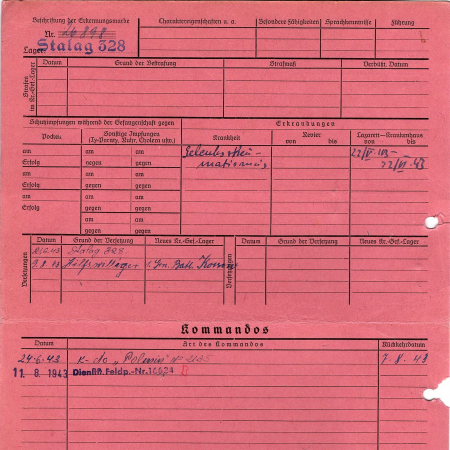 Beschriftung der Erkennungsmarke
Nr.
Lager: Stalag 328
Charaktereigenschaften u. a.
Besondere Fähigkeiten
Sprachkenntnisse
Führung
Strafen im Kr.-Gef.-Lager
Datum
Grund der Bestrafung
Strafmaß
Verbüßt, Datum
Schutzimpfungen während der Gefangenschaft gegen
Erkrankungen
Pocken
Sonstige Impfungen
(Ty-Paraty, Ruhr, Cholera usw.)
Krankheit
Revier
von bis
Lazarett—Krankenhaus
von bis
am am am
Erfolg gegen gegen
am am am
Erfolg gegen gegen
am am am
Erfolg gegen gegen
am am
gegen gegen
am am
gegen gegen
Versetzungen
Datum
Grund der Versetzung
Neues Kr.-Gef.-Lager
Versetzungen
Datum
Grund der Versetzung
Neues Kr.-Gef.-Lager
Stalag 328
Hilfswilliger
Kommandos
Datum
Art des Kommandos
Rückkehrdatum
24.6.43
7.8.43
11. 8. 1943 Feldp.-Nr.